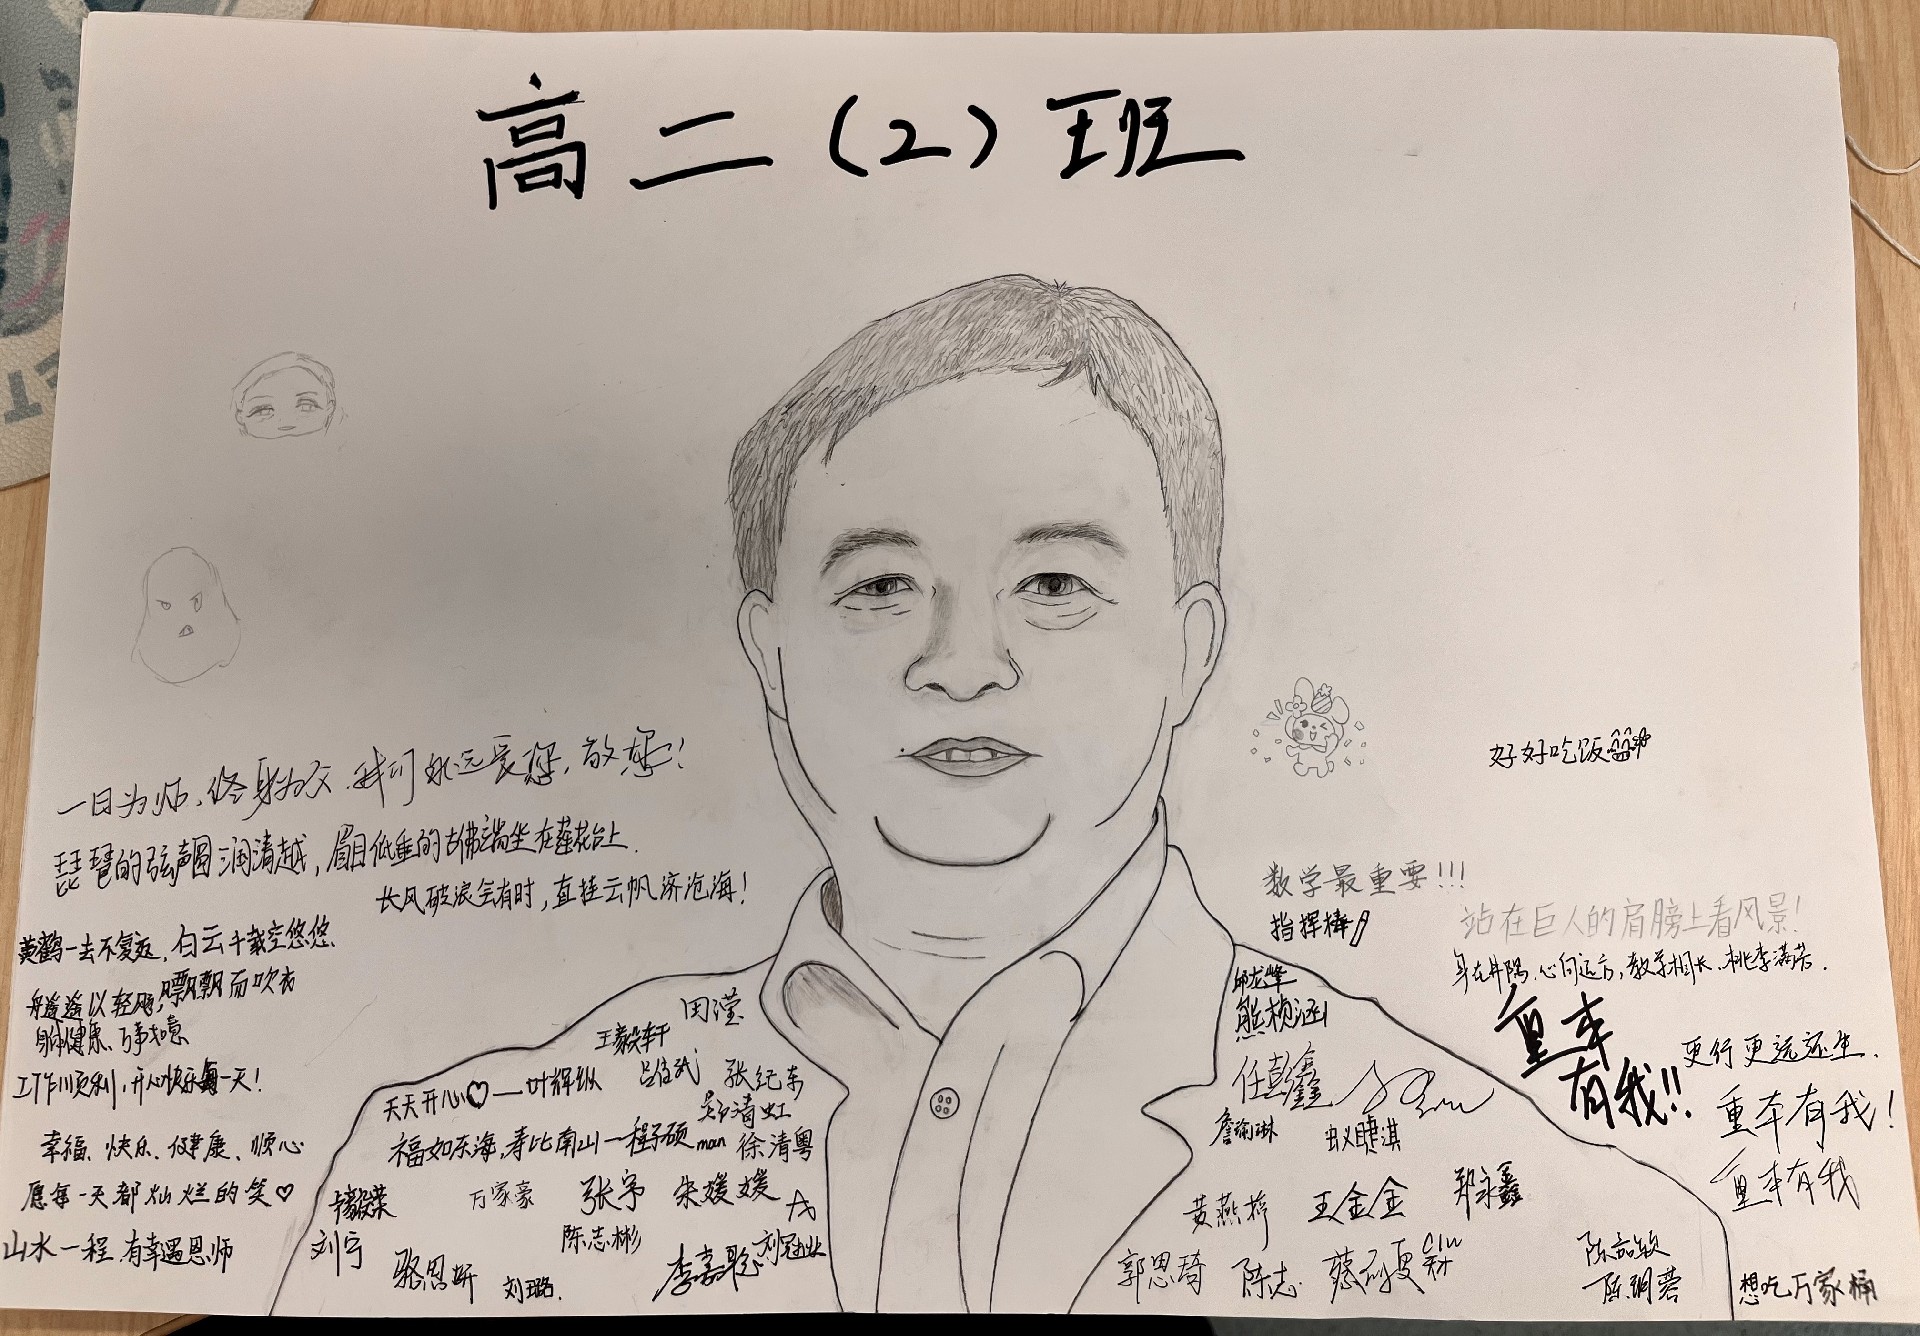 高二（2）班
一日为师，终身为父，我们永远爱您，敬您！
琵琶的弦声圆润清越，眉目低垂的古佛端坐在莲花台上.
长风破浪会有时，直挂云帆济沧海！
黄鹤一去不复返，白云千载空悠悠.
舟遥遥以轻飏，飘飘而吹衣
身体健康、万事如意
工作顺利，开心快乐每一天！
幸福、快乐、健康、顺心
愿每一天都灿烂的笑♡
山水一程，有幸遇恩师
好好吃饭
数学最重要!!!
指挥棒
站在巨人的肩膀上看风景！
身在井隅，心向远方，教学相长，桃李满芳.
重本
有我!!
更行更远还生.
重本有我！
重本有我
想吃万家桶
田滢
王毅轩
张纪东
天天开心♡——叶辉纵
郑清虹
福如东海，寿比南山—程子硕
man 徐清粤
万家豪
张予
朱媛媛
陈志彬
刘宁
骆思妍
刘璐.
李嘉聪
刘冠业
邱龙峰
熊桢涵
任彭鑫
詹瑜琳
蚁睫淇
黄燕婷
王金金
郑永鑫
郭思琦
陈志